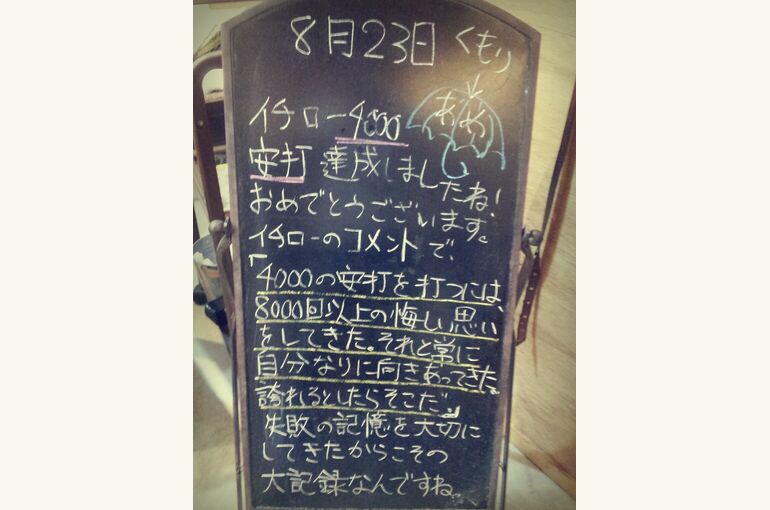 8月23日 くもり
あめ
イチロー4000
安打達成しましたね!
おめでとうございます。
イチローのコメントで、
「4000の安打を打つには、
8000回以上の悔しい思い
をしてきた。それと常に
自分なりに向きあってきた。
誇れるとしたらそこだ。」
失敗の記憶を大切に
してきたからこその
大記録なんですね。